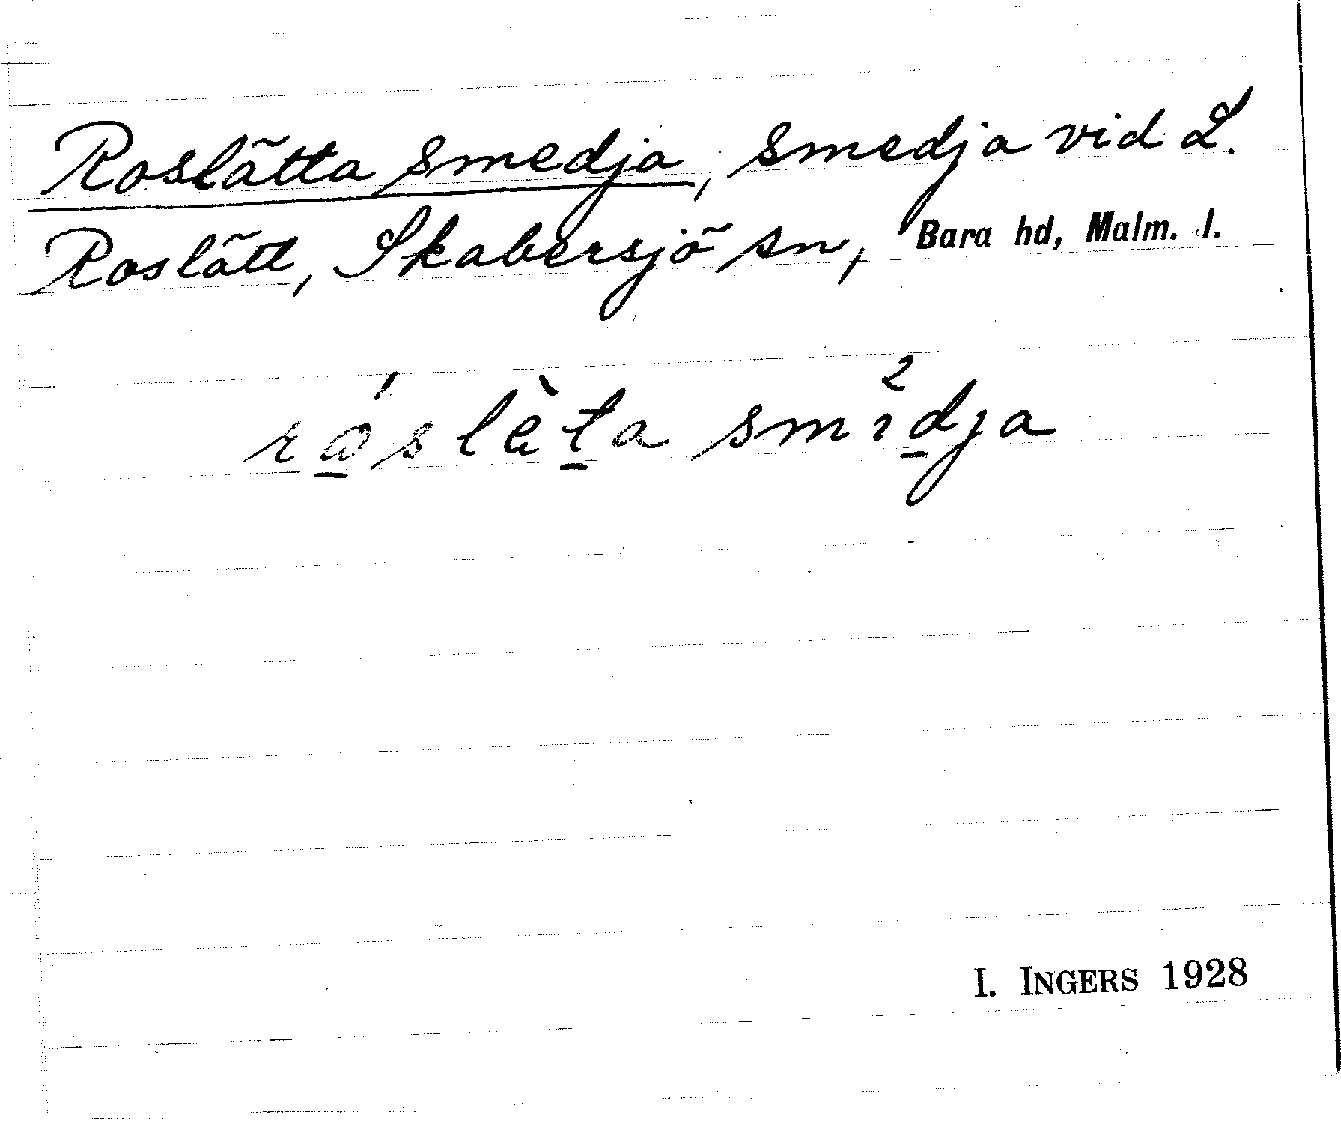 Roslätta smedja, smedja vid L.
Roslätt, Skabersjö sn, Bara hd, Malm. l.
I. INGERS 1928